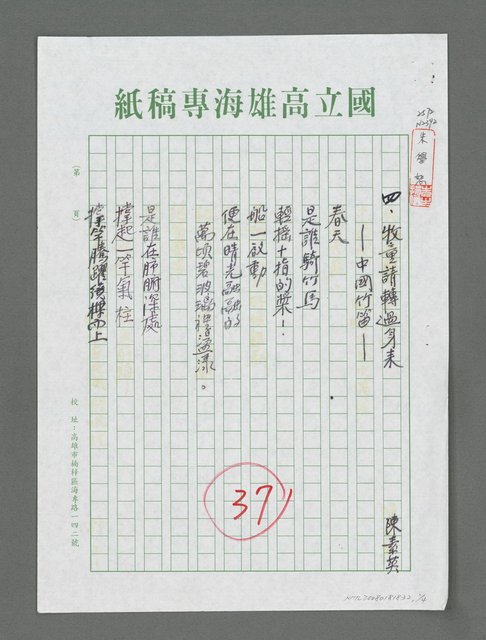 國立高雄海專稿紙
四．牧童請轉過身來
陳素英
—中國竹笛—
春天
是誰騎竹馬
輕搖十指的槳！
船一啟動
便在晴光融融的
萬頃碧波漾盪漾。
是誰在肺腑深處
撐起一竿氣柱
(第　　頁)
校　址：高雄市楠梓區海專路一四二號
371
朱學恕